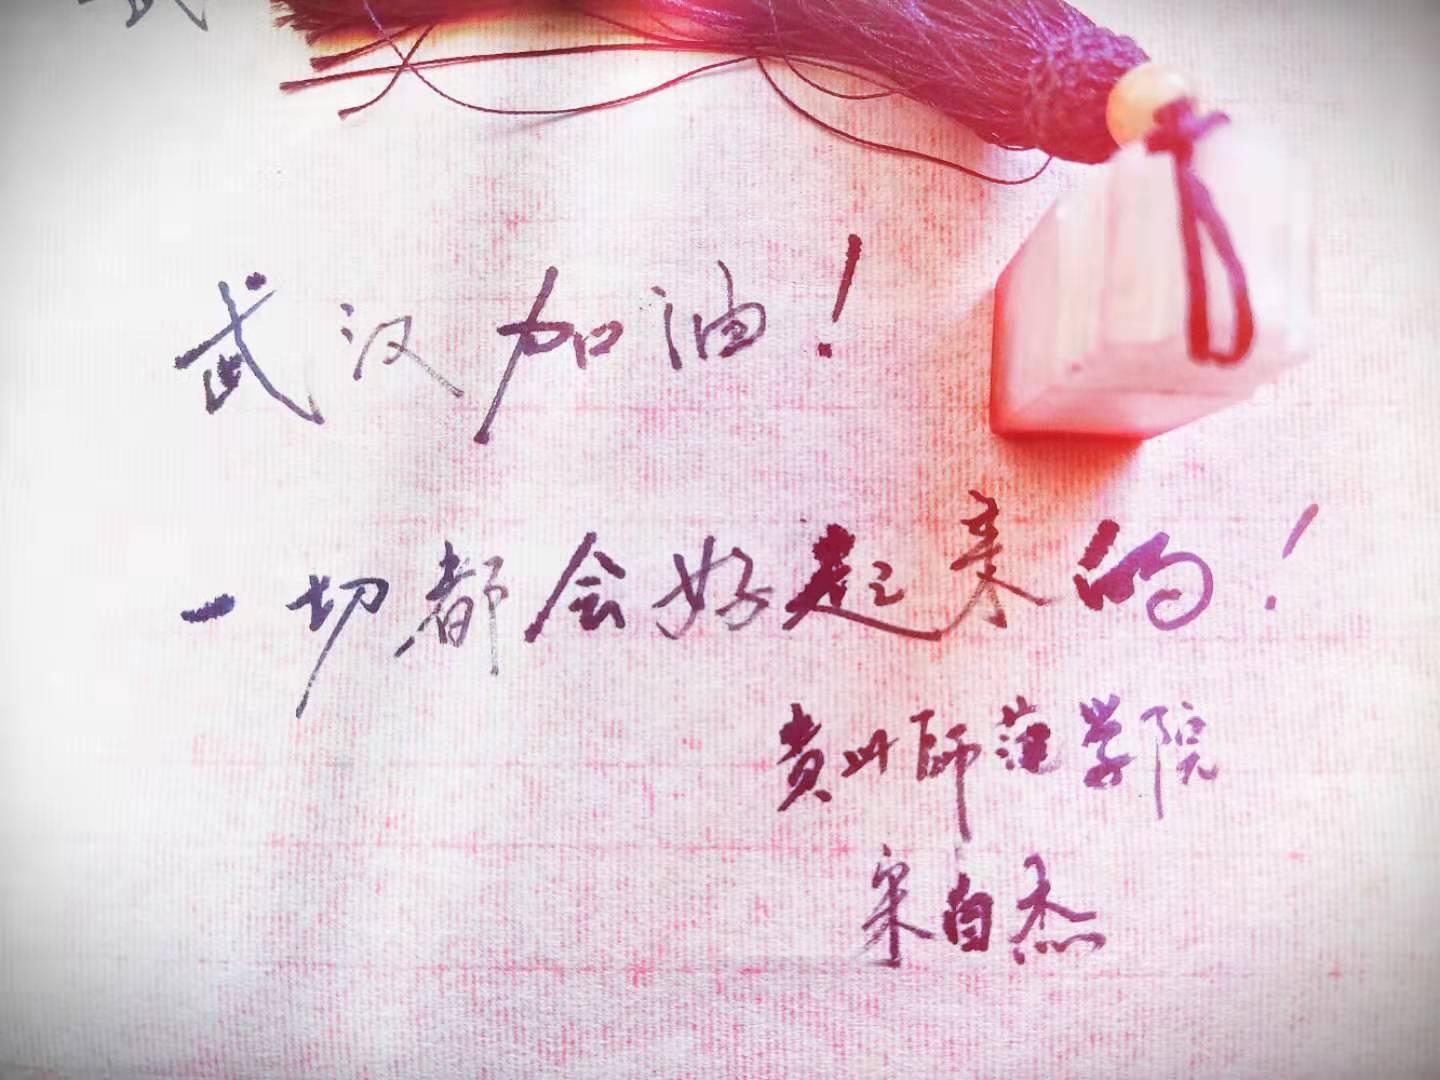 武汉加油！
一切都会好起来的！
贵州师范学院
宋自杰